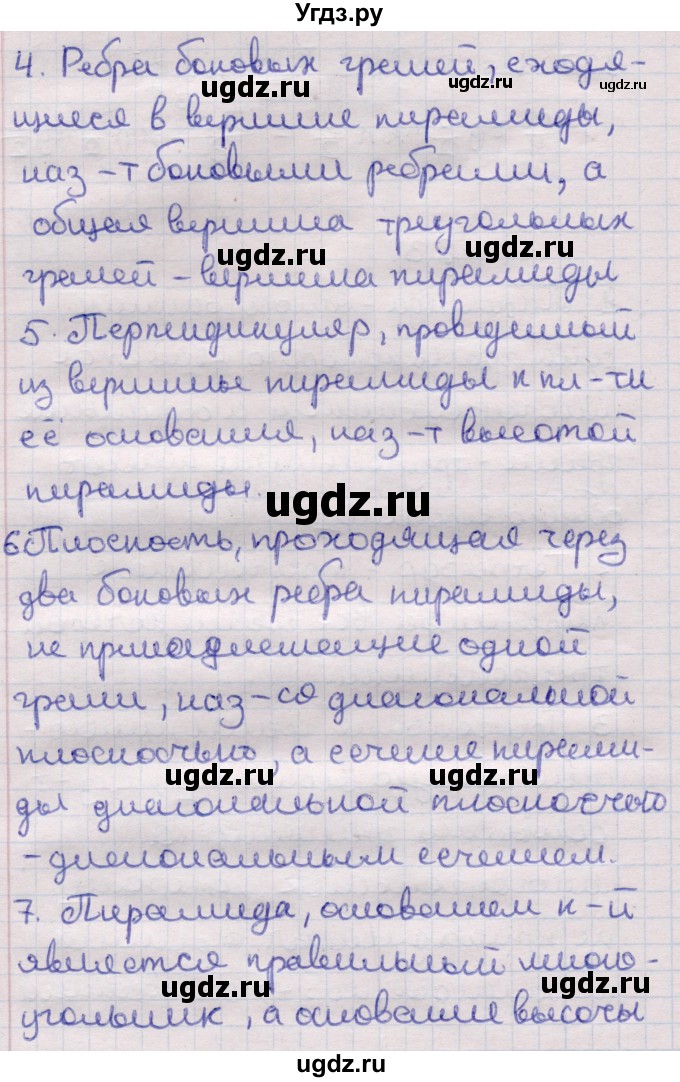 Угдз.ру
4. Ребра боковых граней, сходя-
ugdz.ru
ugdz.ru
щиеся в вершине пирамиды,
наз-т боковыми ребрами, а
общая вершина треугольных
ugdz.ru
ugdz.ru
граней - вершина пирамиды
5. Перпендикуляр, проведенный
из вершины пирамиды к пл-ти
ugdz.ru
ugdz.ru
её основания, наз-т высотой
пирамиды.
ugdz.ru
6. Плоскость, проходящая через
два боковых ребра пирамиды,
ugdz.ru
ugdz.ru
не принадлежащие одной
грани, наз-ся диагональной
плоскостью, а сечение пирами-
ugdz.ru
ugdz.ru
ды диагональной плоскостью
- диагональным сечением.
ugdz.ru
ugdz.ru
7. Пирамида, основанием к-й
является правильный много-
ugdz.ru
ugdz.ru
угольник, а основание высоты
ugdz.ru